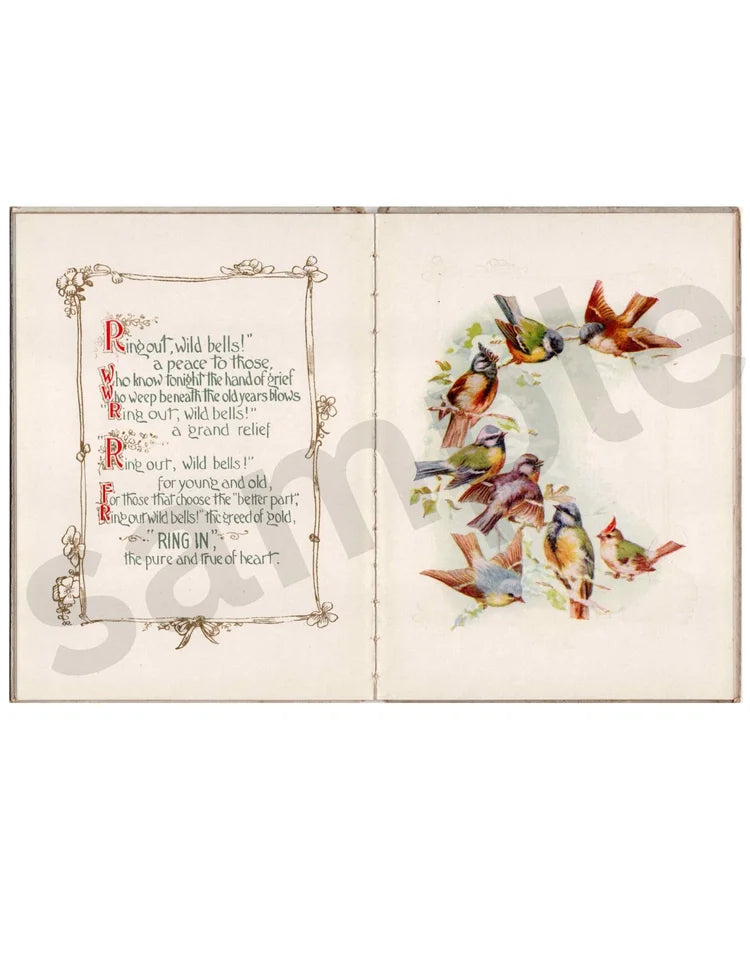 Ring out, wild bells!"
a peace to those,
Who know tonight the hand of grief
Who weep beneath the old years blows
"Ring out, wild bells!"
a grand relief
Ring out, wild bells!"
for young and old,
For those that choose the "better part",
Ring out wild bells!" the greed of gold,
"RING IN",
the pure and true of heart.
sample